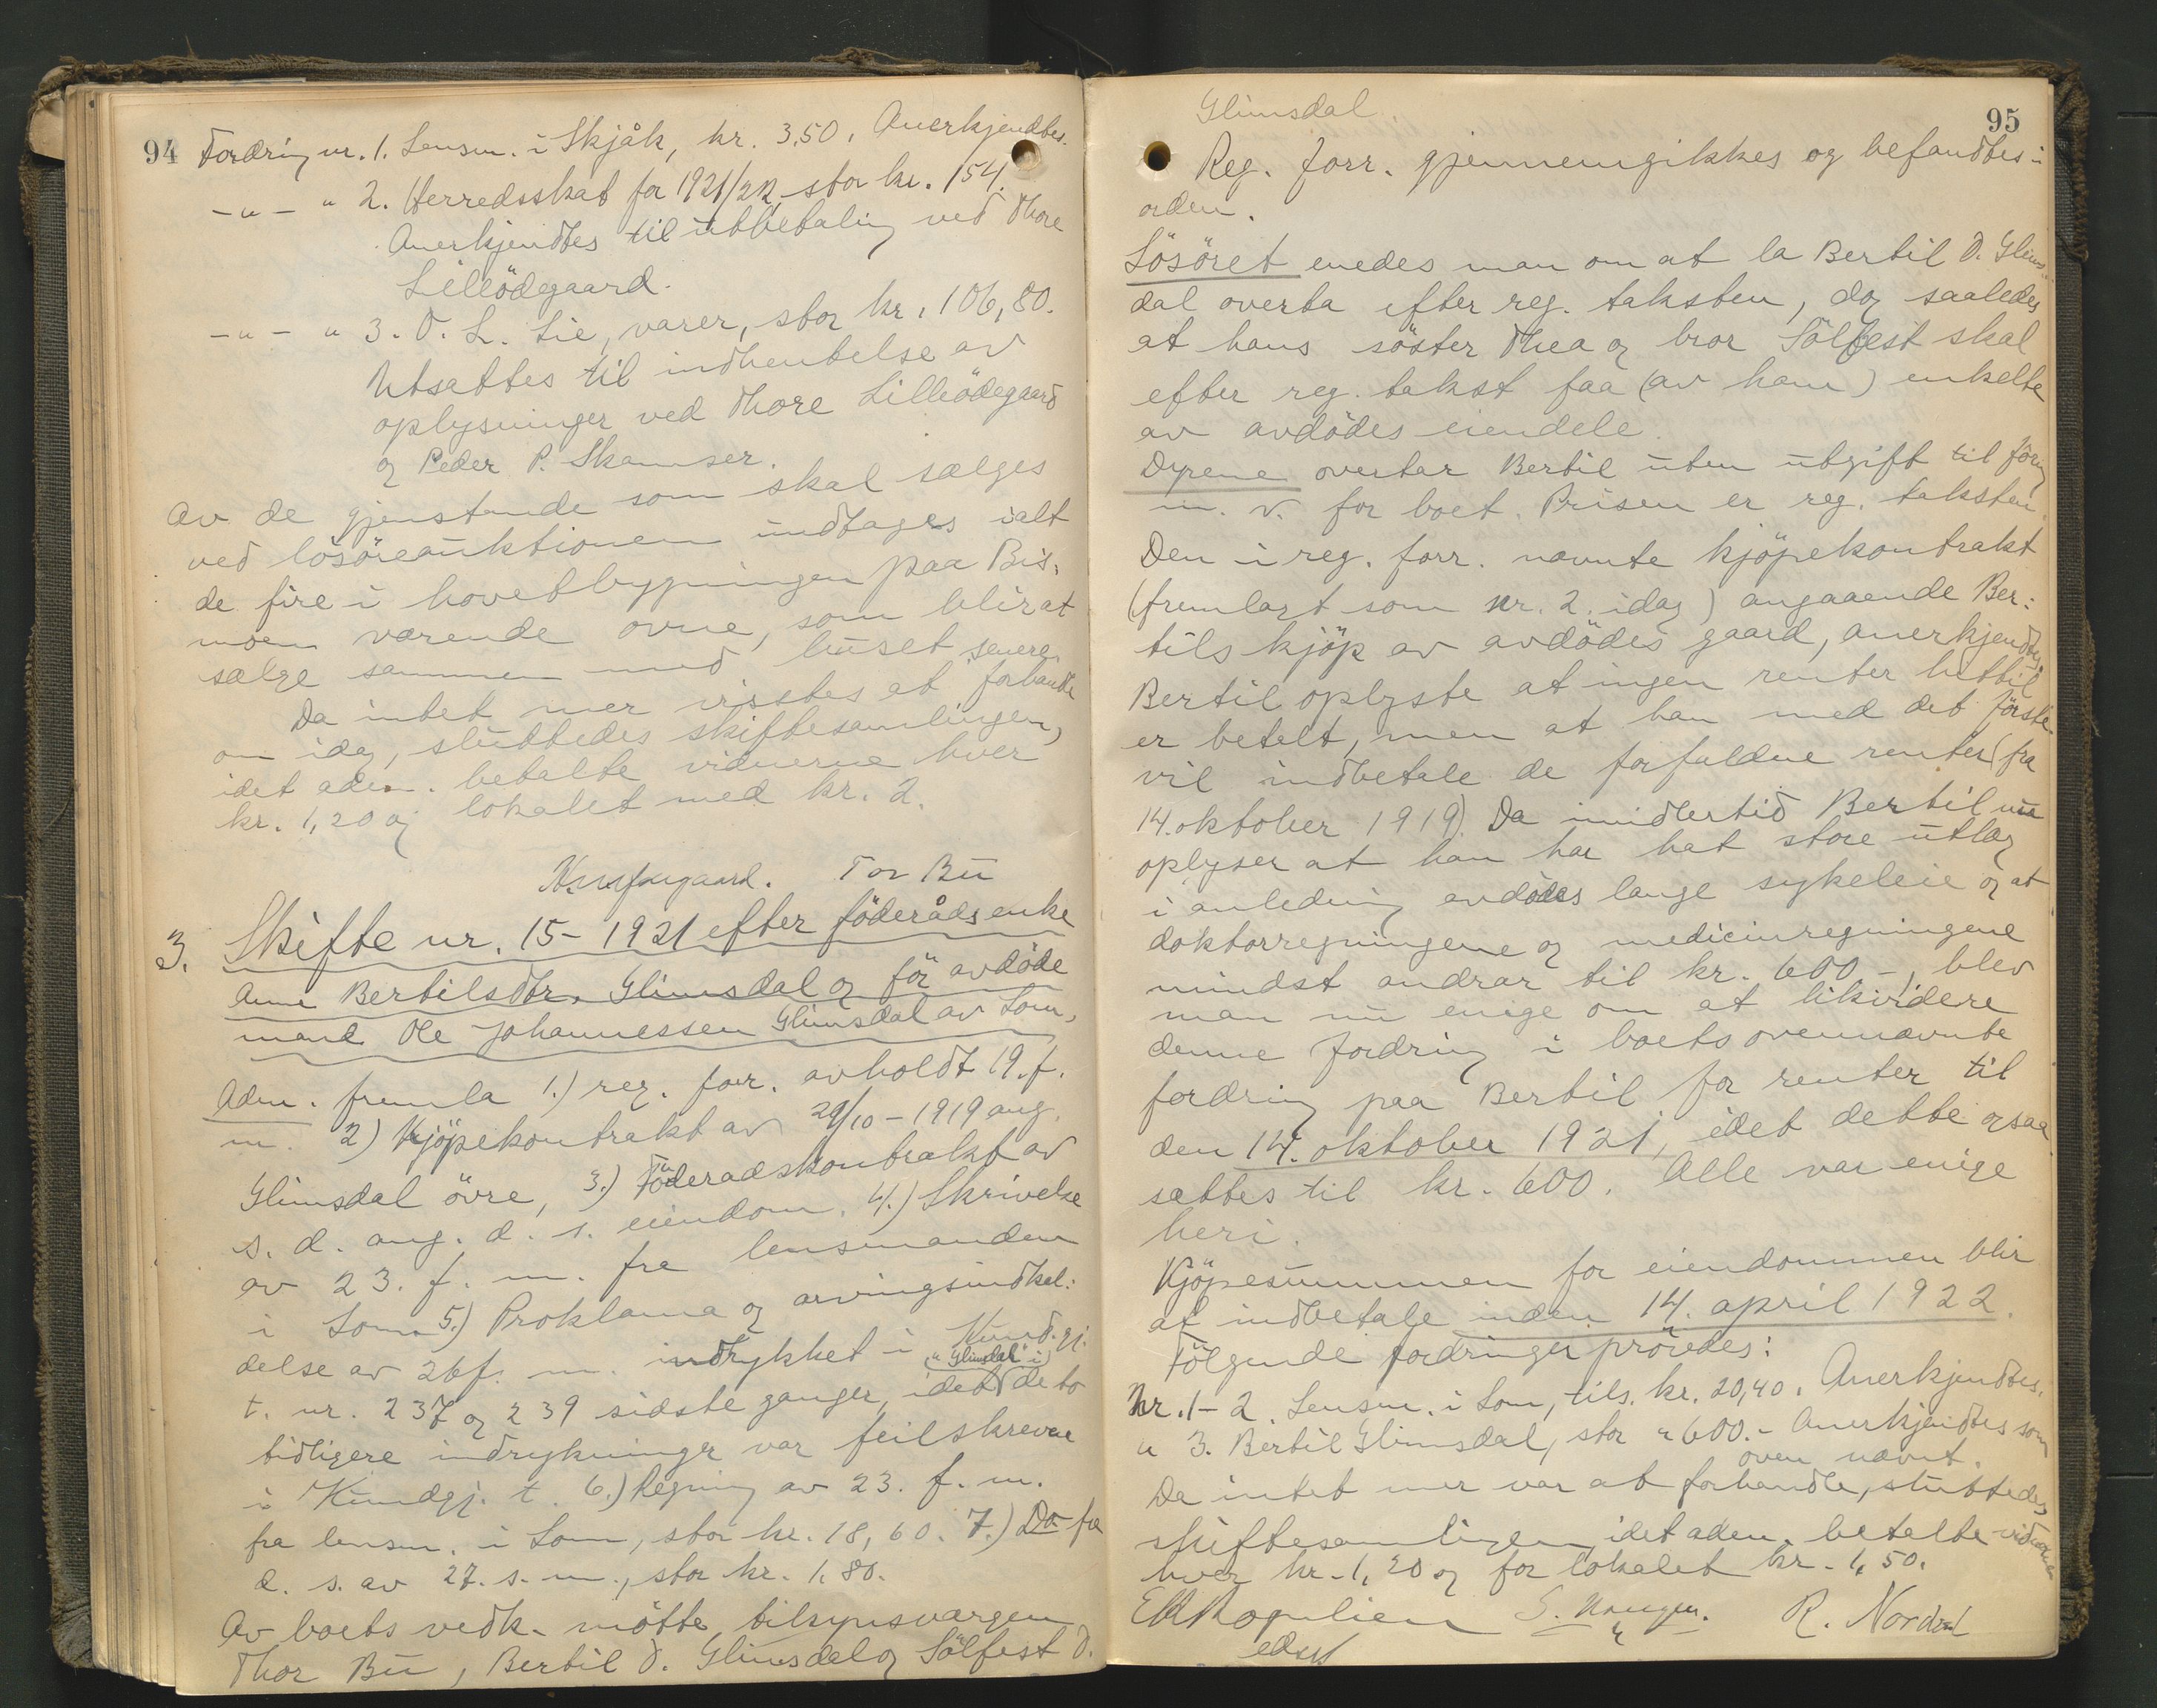 94 Fordring nr. 1. Lensm. i Skjåk, kr. 3,50. Anerkjendtes.
-"- " 2. Herredsskat for 1921/22, stor kr. 154.
Anerkjendtes til utbetaling ved Thore
Lilleödegaard.
-"- " 3. O. L. Lie, varer, stor kr. 106,80.
Utsattes til indhentelse av
oplysninger ved Thore Lilleödegaard
og Peder P. Skamser.
Av de gjenstande som skal sælges
ved lösöreauktionen undtages ialt
de fire i hovetbygningen paa Bis-
moen værende ovne, som blir at
sælge sammen med huset senere.
Da intet mer visstes at forhandle
om idag, sluttedes skiftesamlingen,
idet adm. betalte vidnerne hver
kr. 1,20 og lokalet med kr. 2.
Tor Bu
3. Skifte nr. 15 - 1921 efter föderådsenke
Anne Bertilsdtr. Glimsdal og för avdöde
mand Ole Johannessen Glimsdal av Lom.
Adm. fremla 1.) reg. forr. avholdt 19. f.
m. 2) Kjöpekontrakt av 29/10 - 1919 ang.
Glimsdal övre, 3.) Föderadskontrakt av
s. d. ang. d. s. eiendom. 4.) Skrivelse
av 23. f. m. fra lensmanden
i Lom. 5.) Proklama og arvingsindkal:
delse av 26 f. m. indrykket i Kund.gj.
t. nr. 237 og 239 sidste ganger, idet ("Glimsdal" i) de to
tidligere indrykninger var feilskrevne
i Kundgj. t. 6.) Regning av 23. f. m.
fra lensm. i Lom, stor kr. 18,60. 7.) Do fra
d. s. av 27. s. m., stor kr. 1,80.
Av boets vedk. mötte tilsynsvargen
Thor Bu, Bertil O. Glimsdal og Sölfest O.
Glimsdal.
95
Reg. forr. gjennemgikkes og befandtes i
orden.
Lösöret enedes man om at la Bertil O. Glims:
dal overta efter reg. taksten, dog saaledes
at hans söster Thea og bror Sölfest skal
efter reg. takst faa (av ham) enkelte
av avdödes eiendele.
Dyrene overtar Bertil uten utgift til foring
m. v. for boet. Prisen er reg. taksten.
Den i reg. forr. nævnte kjöpekontrakt
(fremlagt som nr. 2. idag) angaaende Ber:
tils kjöp av avdödes gaard, anerkjendtes.
Bertil oplyste at ingen renter hittil
er betalt, men at han med det förste
vil indbetale de forfaldne renter (fra
14. oktober 1919). Da imidlertid Bertil nu
oplyser at han har hat store utlæg
i anledning avdödes lange sykeleie og at
doktorregningene og medicinregningene
mindst andrar til kr. 600.-, blev
man nu enige om at likvidere
denne fordring i boets ovennævnte
fordring paa Bertil for renter til
den 14. oktober 1921, idet dette ogsaa
sættes til kr. 600. Alle var enige
heri.
Kjöpesummen for eiendommen blir
at indbetale inden 14. april 1922.
Fölgende fordringer prövedes:
Nr. 1-2. Lensm. i Lom, tils. kr. 20,40. Anerkjendtes.
" 3. Bertil Glimsdal, stor " 600.- Anerkjendtes som
oven nævnt.
Da intet mer var at forhandle, sluttedes
skiftesamlingen, idet adm. betalte vidnerne
hver kr. 1,20 og for lokalet kr. 1,50.
R. Nordal
edsv